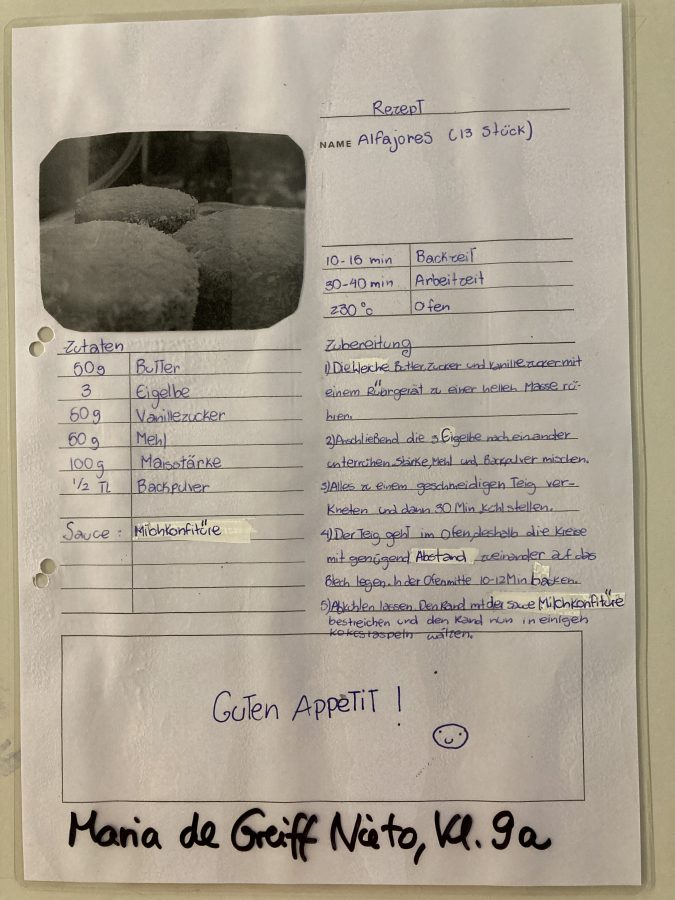 Rezept
NAME Alfajores (13 Stück)
10-15 min Backzeit
30-40 min Arbeitzeit
230°C Ofen
Zutaten
50g Butter
3 Eigelbe
50g Vanillezucker
50g Mehl
100g Maisstärke
1/2 TL Backpulver
Sauce: Milchkonfitüre
Zubereitung
1) Die Weiche Butter, Zucker und Vanillezucker mit
einem Rührgerät zu einer hellen Masse rü-
hren.
2) Anschließend die 3 Eigelbe nach einander
unterrühen. Stärke, Mehl und Backpulver mischen.
3) Alles zu einem geschmeidigen Teig ver-
Kneten und dann 30 Min. kühl stellen.
4) Der Teig geht im Ofen, deshalb die Kreise
mit genügend Abstand zueinander auf das
Blech legen. In der Ofenmitte 10-12 Min backen.
5) Abkühlen lassen. Den Rand mit der Sauce Milchkonfitüre
bestreichen und den Rand nun in einigen
kokosraspeln wälzen.
Guten Appetit!
Maria de Greiff Nieto, Kl. 9a